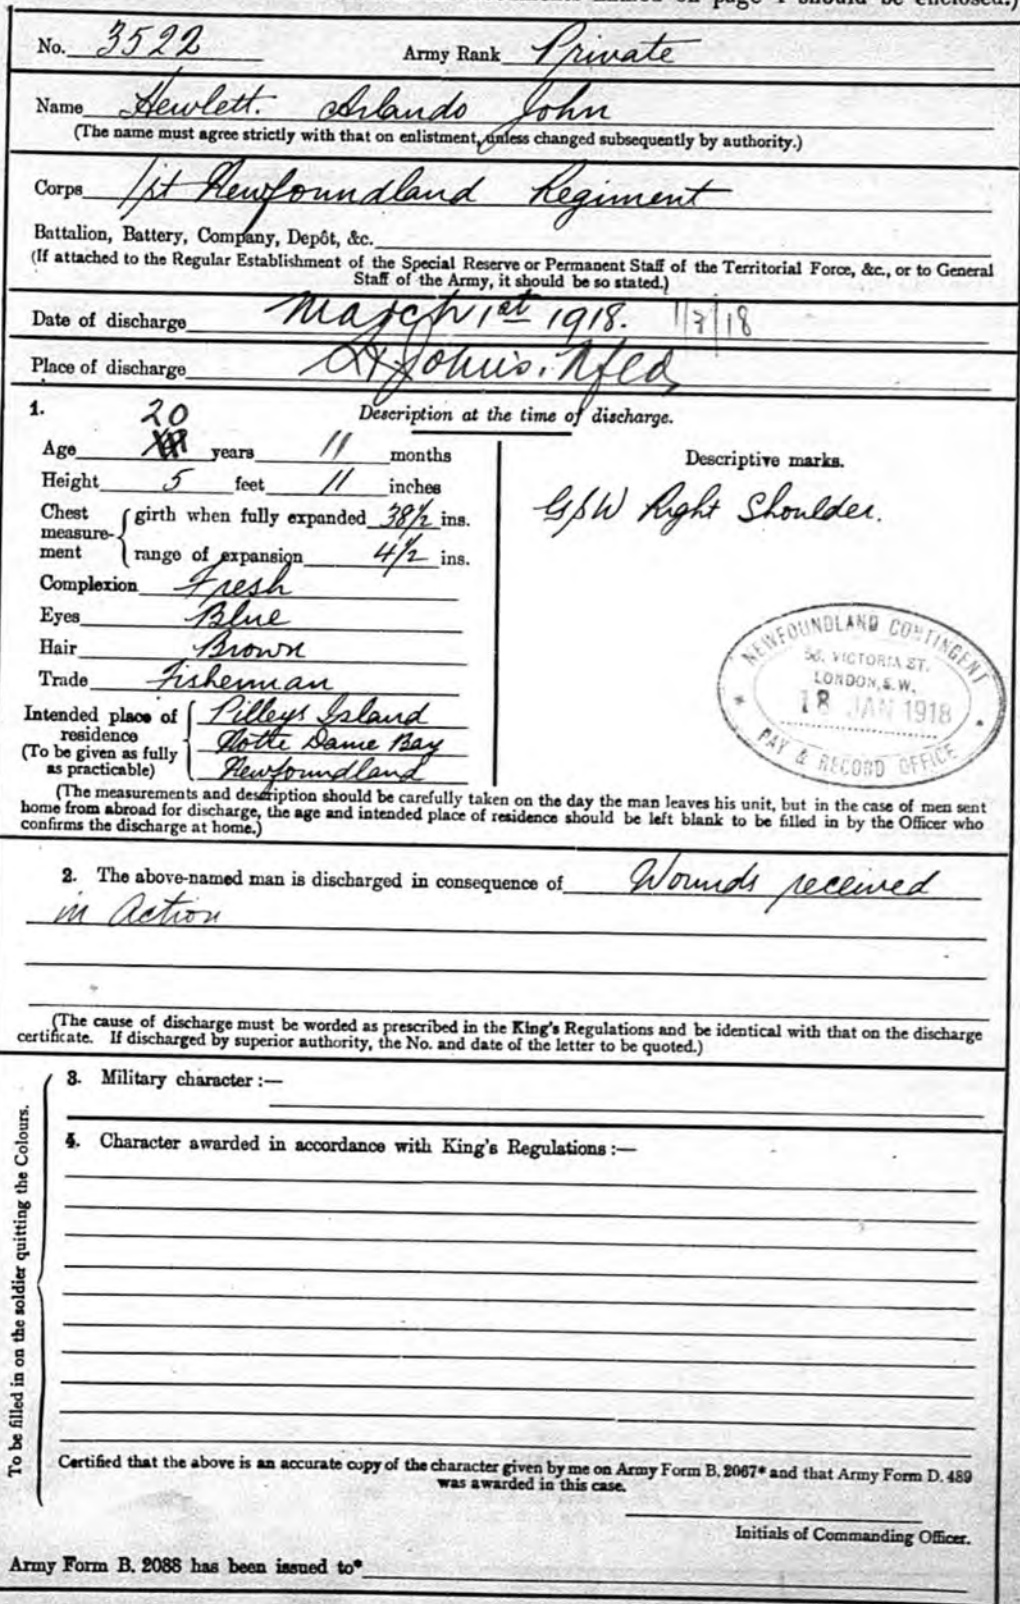 on page 1 should be enclosed.)
No. 3522 Army Rank Private
Name Hewlett. Arlando John
(The name must agree strictly with that on enlistment, unless changed subsequently by authority.)
Corps 1st Newfoundland Regiment
Battalion, Battery, Company, Depôt, &c.
(If attached to the Regular Establishment of the Special Reserve or Permanent Staff of the Territorial Force, &c., or to General
Staff of the Army, it should be so stated.)
Date of discharge March 1st 1918. 1/3/18
Place of discharge St John's. Nfld,
1. Description at the time of discharge.
20
Age years 11 months
Height 5 feet 11 inches
Chest measure-ment
girth when fully expanded 38½ ins.
range of expansion 4½ ins.
Complexion Fresh
Eyes Blue
Hair Brown
Trade Fisherman
Intended place of residence
(To be given as fully as practicable)
Pilleys Island
Notte Dame Bay
Newfoundland
Descriptive marks.
GSW Right Shoulder.
NEWFOUNDLAND CONTINGENT
58, VICTORIA ST.
LONDON, S.W.
18 JAN 1918
PAY & RECORD OFFICE
(The measurements and description should be carefully taken on the day the man leaves his unit, but in the case of men sent
home from abroad for discharge, the age and intended place of residence should be left blank to be filled in by the Officer who
confirms the discharge at home.)
2. The above-named man is discharged in consequence of Wounds received
in Action
(The cause of discharge must be worded as prescribed in the King's Regulations and be identical with that on the discharge
certificate. If discharged by superior authority, the No. and date of the letter to be quoted.)
To be filled in on the soldier quitting the Colours.
3. Military character :—
4. Character awarded in accordance with King's Regulations :—
Certified that the above is an accurate copy of the character given by me on Army Form B. 2067* and that Army Form D. 489
was awarded in this case.
Initials of Commanding Officer.
Army Form B. 2088 has been issued to*